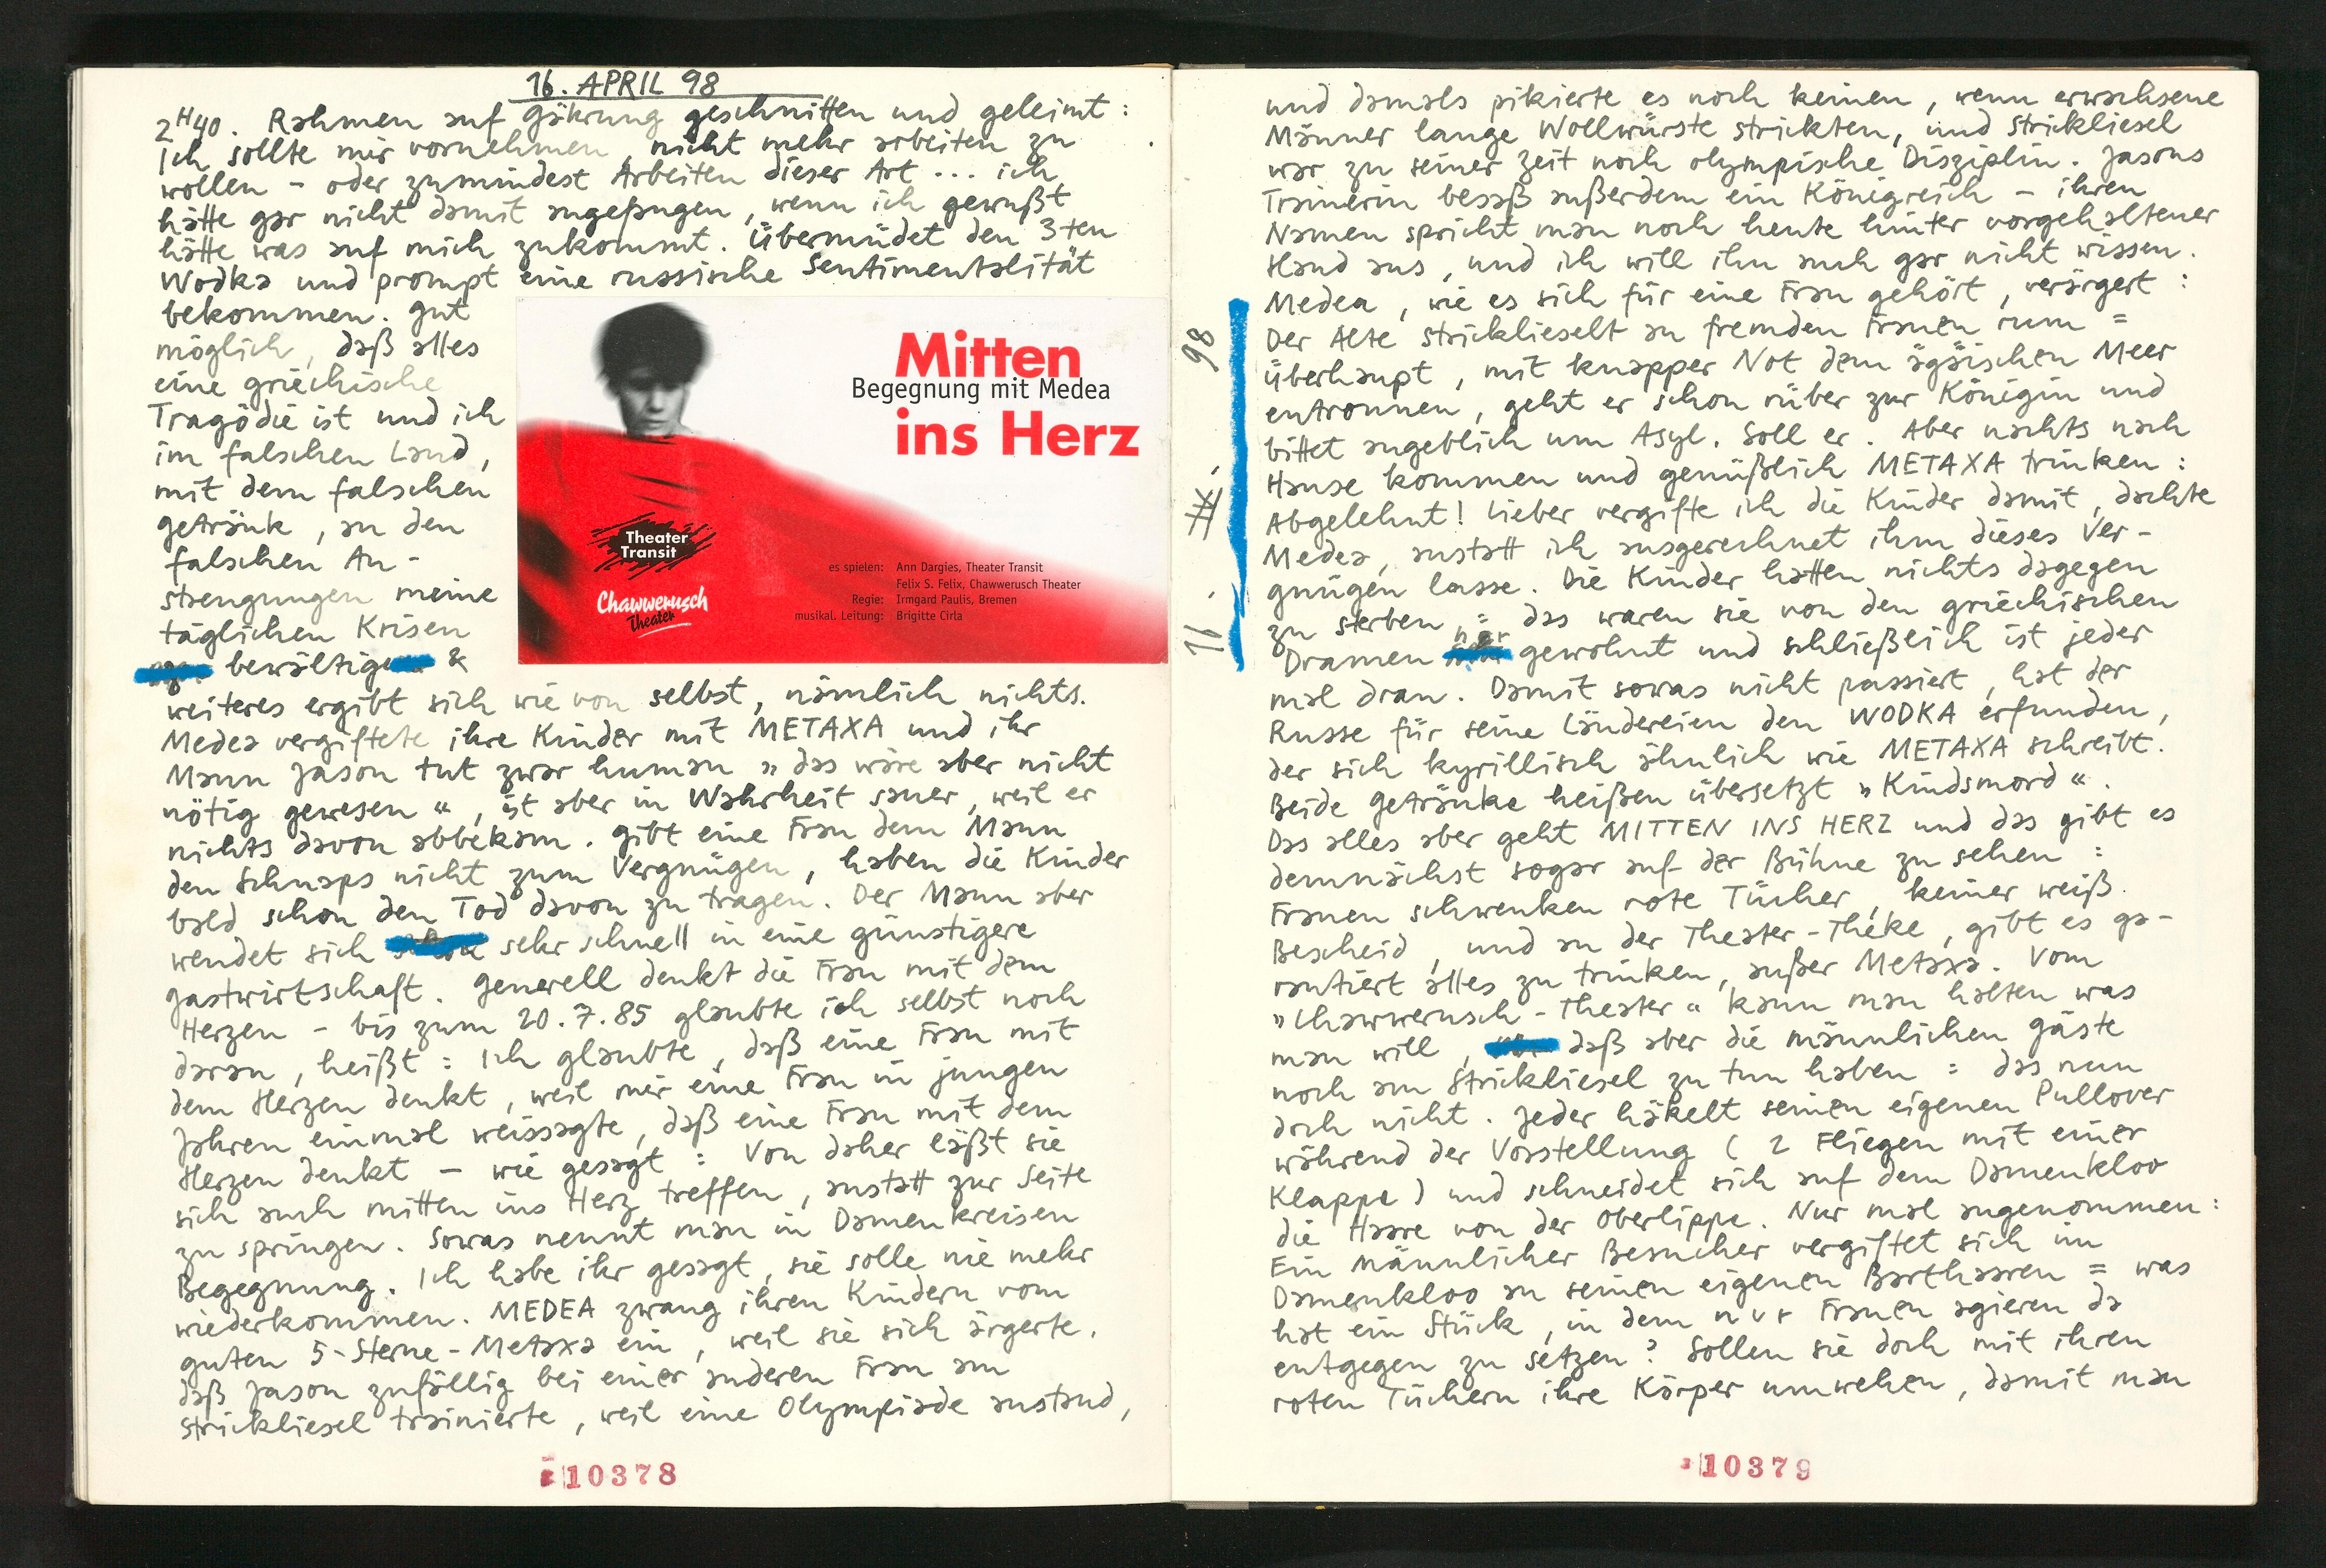 16. APRIL 98
2H40. Rahmen auf Gährung geschnitten und geleimt:
Ich sollte mir vornehmen, nicht mehr arbeiten zu
wollen – oder zumindest Arbeiten dieser Art ... ich
hätte gar nicht damit angefangen, wenn ich gewußt
hätte was auf mich zukommt. Übermüdet den 3ten
Wodka und prompt eine russische Sentimentalität
bekommen. Gut
möglich, daß alles
eine griechische
Tragödie ist und ich
im falschen Land,
mit dem falschen
Getränk, an den
falschen An-
strengungen meine
täglichen Krisen
bewältige &
weiteres ergibt sich wie von selbst, nämlich nichts.
Medea vergiftete ihre Kinder mit METAXA und ihr
Mann Jason tut zwar human „das wäre aber nicht
nötig gewesen“, ist aber in Wahrheit sauer, weil er
nichts davon abbekam. Gibt eine Frau dem Mann
den Schnaps nicht zum Vergnügen, haben die Kinder
bald schon den Tod davon zu tragen. Der Mann aber
wendet sich sehr schnell in eine günstigere
Gastwirtschaft. Generell denkt die Frau mit dem
Herzen – bis zum 20.7.85 glaubte ich selbst noch
daran, heißt: Ich glaubte, daß eine Frau mit
dem Herzen denkt, weil mir eine Frau in jungen
Jahren einmal weissagte, daß eine Frau mit dem
Herzen denkt – wie gesagt: Von daher läßt sie
sich auch mitten ins Herz treffen, anstatt zur Seite
zu springen. Sowas nennt man in Damenkreisen
Begegnung. Ich habe ihr gesagt, sie solle nie mehr
wiederkommen. MEDEA zwang ihren Kindern vom
guten 5-Sterne-Metaxa ein, weil sie sich ärgerte,
daß Jason zufällig bei einer anderen Frau am
Strickliesel trainierte, weil eine Olympiade anstand,
10378
Mitten
Begegnung mit Medea
ins Herz
Theater
Transit
Chawwerusch
Theater
es spielen: Ann Dargies, Theater Transit
Felix S. Felix, Chawwerusch Theater
Regie: Irmgard Paulis, Bremen
musikal. Leitung: Brigitte Cirla
98
und damals pikierte es noch keinen, wenn erwachsene
Männer lange Wollwürste strickten, und Strickliesel
war zu seiner Zeit noch olympische Disziplin. Jasons
Trainerin besaß außerdem ein Königreich – ihren
Namen spricht man noch heute hinter vorgehaltener
Hand aus, und ich will ihn auch gar nicht wissen.
Medea, wie es sich für eine Frau gehört, verärgert:
Der Alte stricklieselt an fremden Frauen rum =
überhaupt, mit knapper Not dem ägäischen Meer
entronnen, geht er schon rüber zur Königin und
bittet angeblich um Asyl. Soll er. Aber nachts nach
Hause kommen und genüßlich METAXA trinken:
Abgelehnt! Lieber vergifte ich die Kinder damit, dachte
Medea, anstatt ich ausgerechnet ihm dieses Ver-
gnügen lasse. Die Kinder hatten nichts dagegen
zu sterben = das waren sie von den griechischen
Dramen her gewohnt und schließlich ist jeder
mal dran. Damit sowas nicht passiert, hat der
Russe für seine Ländereien den WODKA erfunden,
der sich kyrillisch ähnlich wie METAXA schreibt.
Beide Getränke heißen übersetzt „Kindsmord“.
Das alles aber geht MITTEN INS HERZ und das gibt es
demnächst sogar auf der Bühne zu sehen:
Frauen schwenken rote Tücher, keiner weiß
Bescheid, und an der Theater-Theke, gibt es ga-
rantiert alles zu trinken, außer Metaxa. Vom
„Chawwerusch-Theater“ kann man halten was
man will, daß aber die männlichen Gäste
noch am Strickliesel zu tun haben = das nun
doch nicht. Jeder häkelt seinen eigenen Pullover
während der Vorstellung (2 Fliegen mit einer
Klappe) und schneidet sich auf dem Damenkloo
die Haare von der Oberlippe. Nur mal angenommen:
Ein männlicher Besucher vergiftet sich im
Damenkloo an seinen eigenen Barthaaren = was
hat ein Stück, in dem nur Frauen agieren da
entgegen zu setzen? Sollen sie doch mit ihren
roten Tüchern ihre Körper umwehen, damit man
10379